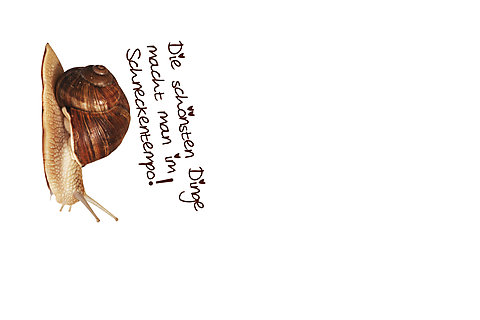 Die schönsten Dinge
macht man im
Schneckentempo!